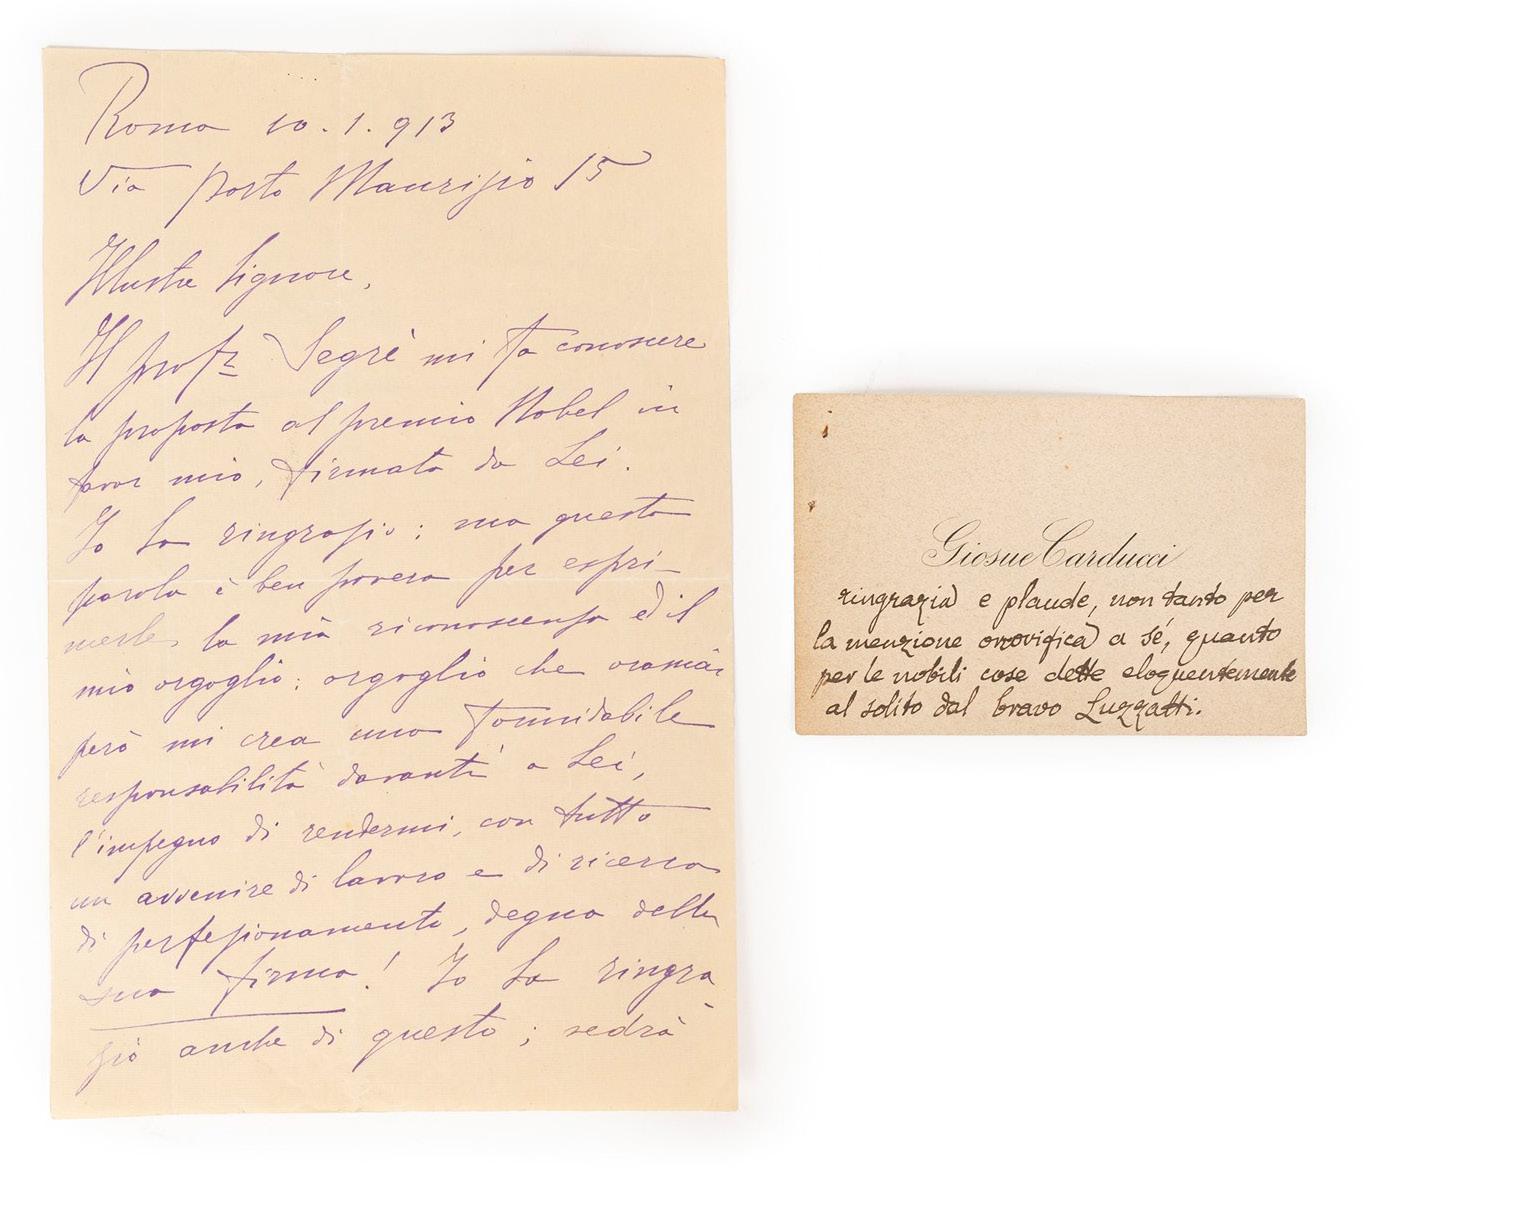 Roma 10.1.913
Via Porto Maurizio 15
Illustre Signore,
Il prof.r Segrè mi fa conoscere
la proposta al premio Nobel in
favor mio, firmata da Lei.
Io La ringrazio; ma questa
parola è ben povera per espri-
merle la mia riconoscenza ed il
mio orgoglio: orgoglio che oramai
però mi crea una formidabile
responsabilità davanti a Lei,
l'impegno di rendermi, con tutto
un avvenire di lavoro e di ricerca
di perfezionamento, degna della
sua firma! Io La ringra-
zio anche di questo; vedrà
Giosue Carducci
ringrazia e plaude, non tanto per
la menzione onorifica a sé, quanto
per le nobili cose dette eloquentemente
al solito dal bravo Luzzatti.